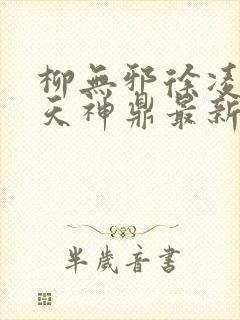 柳無邪徐凌
天神鼎最新
半歲音書